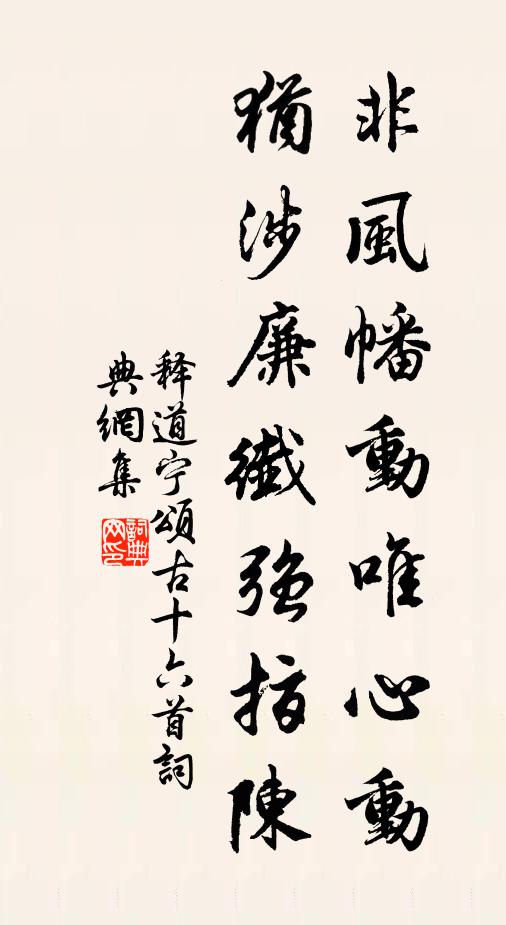 非風幡動唯心動
猶涉廉纖強指陳
释道宁頌古十六首詞
典網集
詞典網印